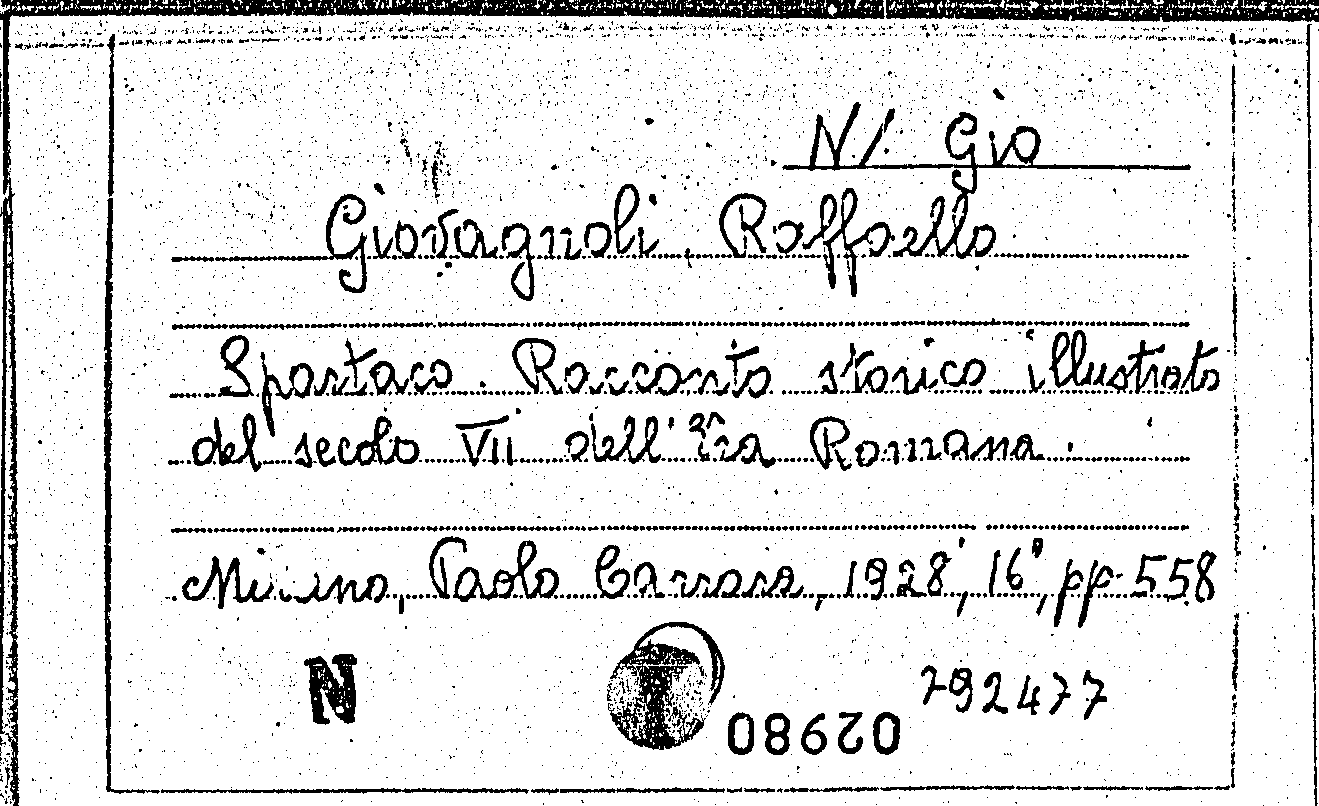 N/. Gio
Giovagnoli, Raffaello
Spartaco. Racconto storico illustrato
del secolo VII dell'Era Romana.
Milano, Paolo Carrara, 1928, 16°, pp. 558
N
792477
02980